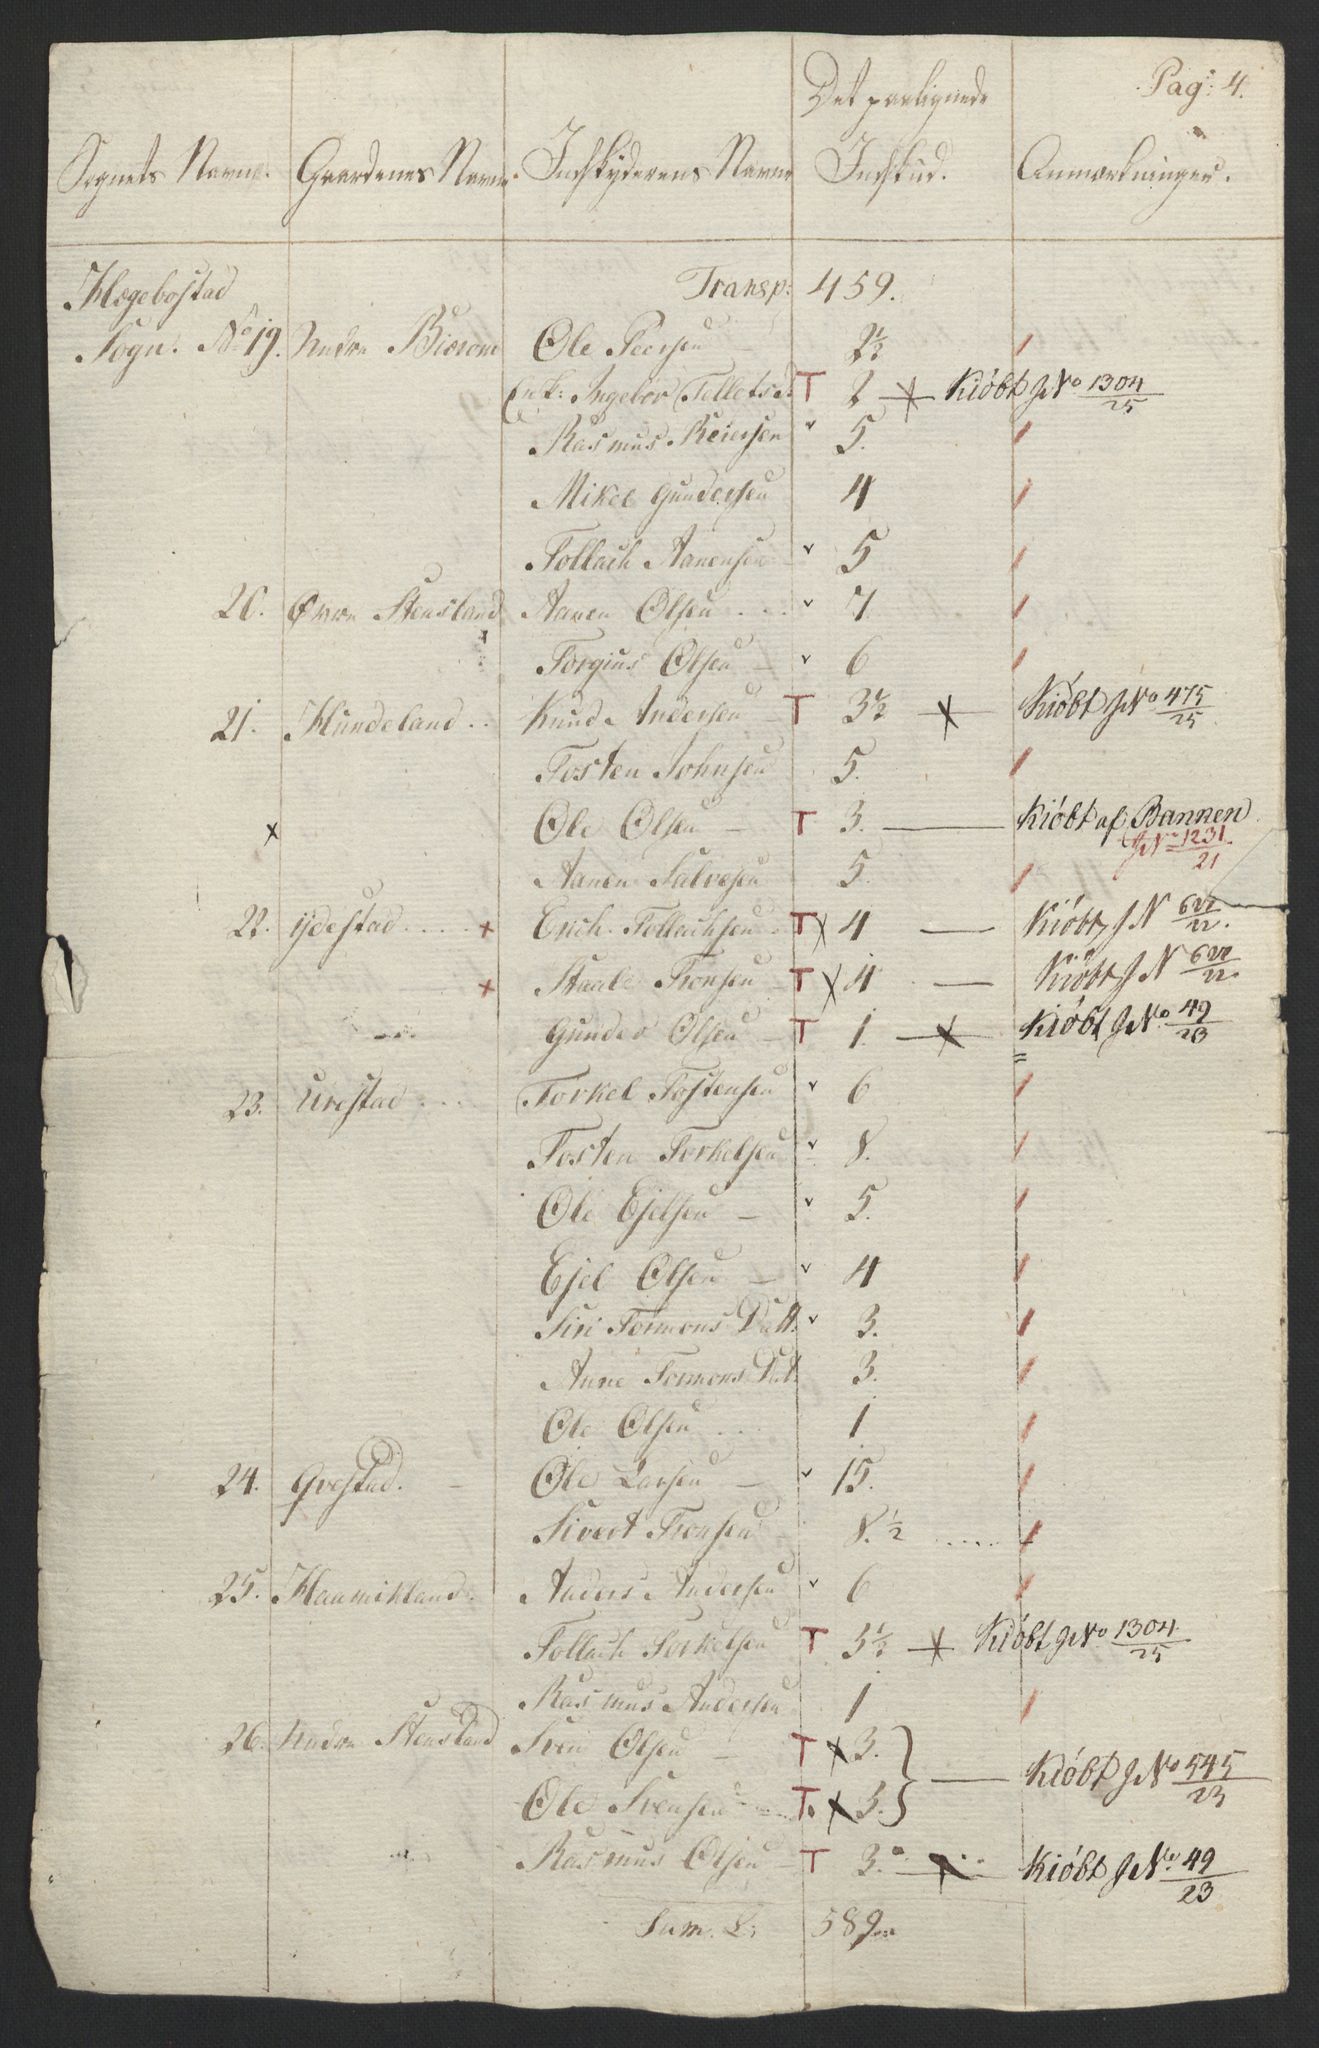 Pag: 4.
Sognets Navne. Gaardenes Navne. Indskyderens Navne Det paalignede Indskud. Anmærkninger.
Hægebostad Transp: 459.
Sogn. No 19. Nedre Biorom Ole Peersen 2½
Enk: Ingebor Tellefsd. T 2 Kiöbt J No 1304/25
Rasmus Reiersen 5.
Mikel Gundersen 4
Tollach Aanensen 5
20. Øvre Stensland Aanen Olsen 7.
Torgius Olsen 6
21. Hundeland Knud Andersen T 3½ Kiöbt J No 475/25
Tosten Johnsen 5.
x Ole Olsen T 3. Kiöbt af Bannen
J No 1231/21
Aanen Salvesen 5.
22. Ydestad + Erich Tollachsen T x 4 Kiöbt J N 622/22.
+ Staale Tronsen T x 4 Kiöbt J N 622/22.
Gunder Olsen T 1. Kiöbt J No. 49/23
23. Urestad Torkel Tostensen 6
Tosten Torkelsen 8.
Ole Ejelsen 5.
Ejel Olsen 4
Siri Tormons Datt. 3.
Anne Tormons Dat. 3.
Ole Olsen 1
24. Qvestad. Ole Larsen 15.
Sivert Tronsen 8.½
25. Haumikland. Anders Andersen 6
Tollach Torkelsen T 5½ Kiöbt J No 1304./25
Rasmus Andersen 1
26. Nedre Stensland Sven Olsen T x 3.
Ole Svensen T. x 5. Kiöbt J No 545/23
Rasmus Olsen T 3. Kiöbt J No. 49/23
Sum. L. 589